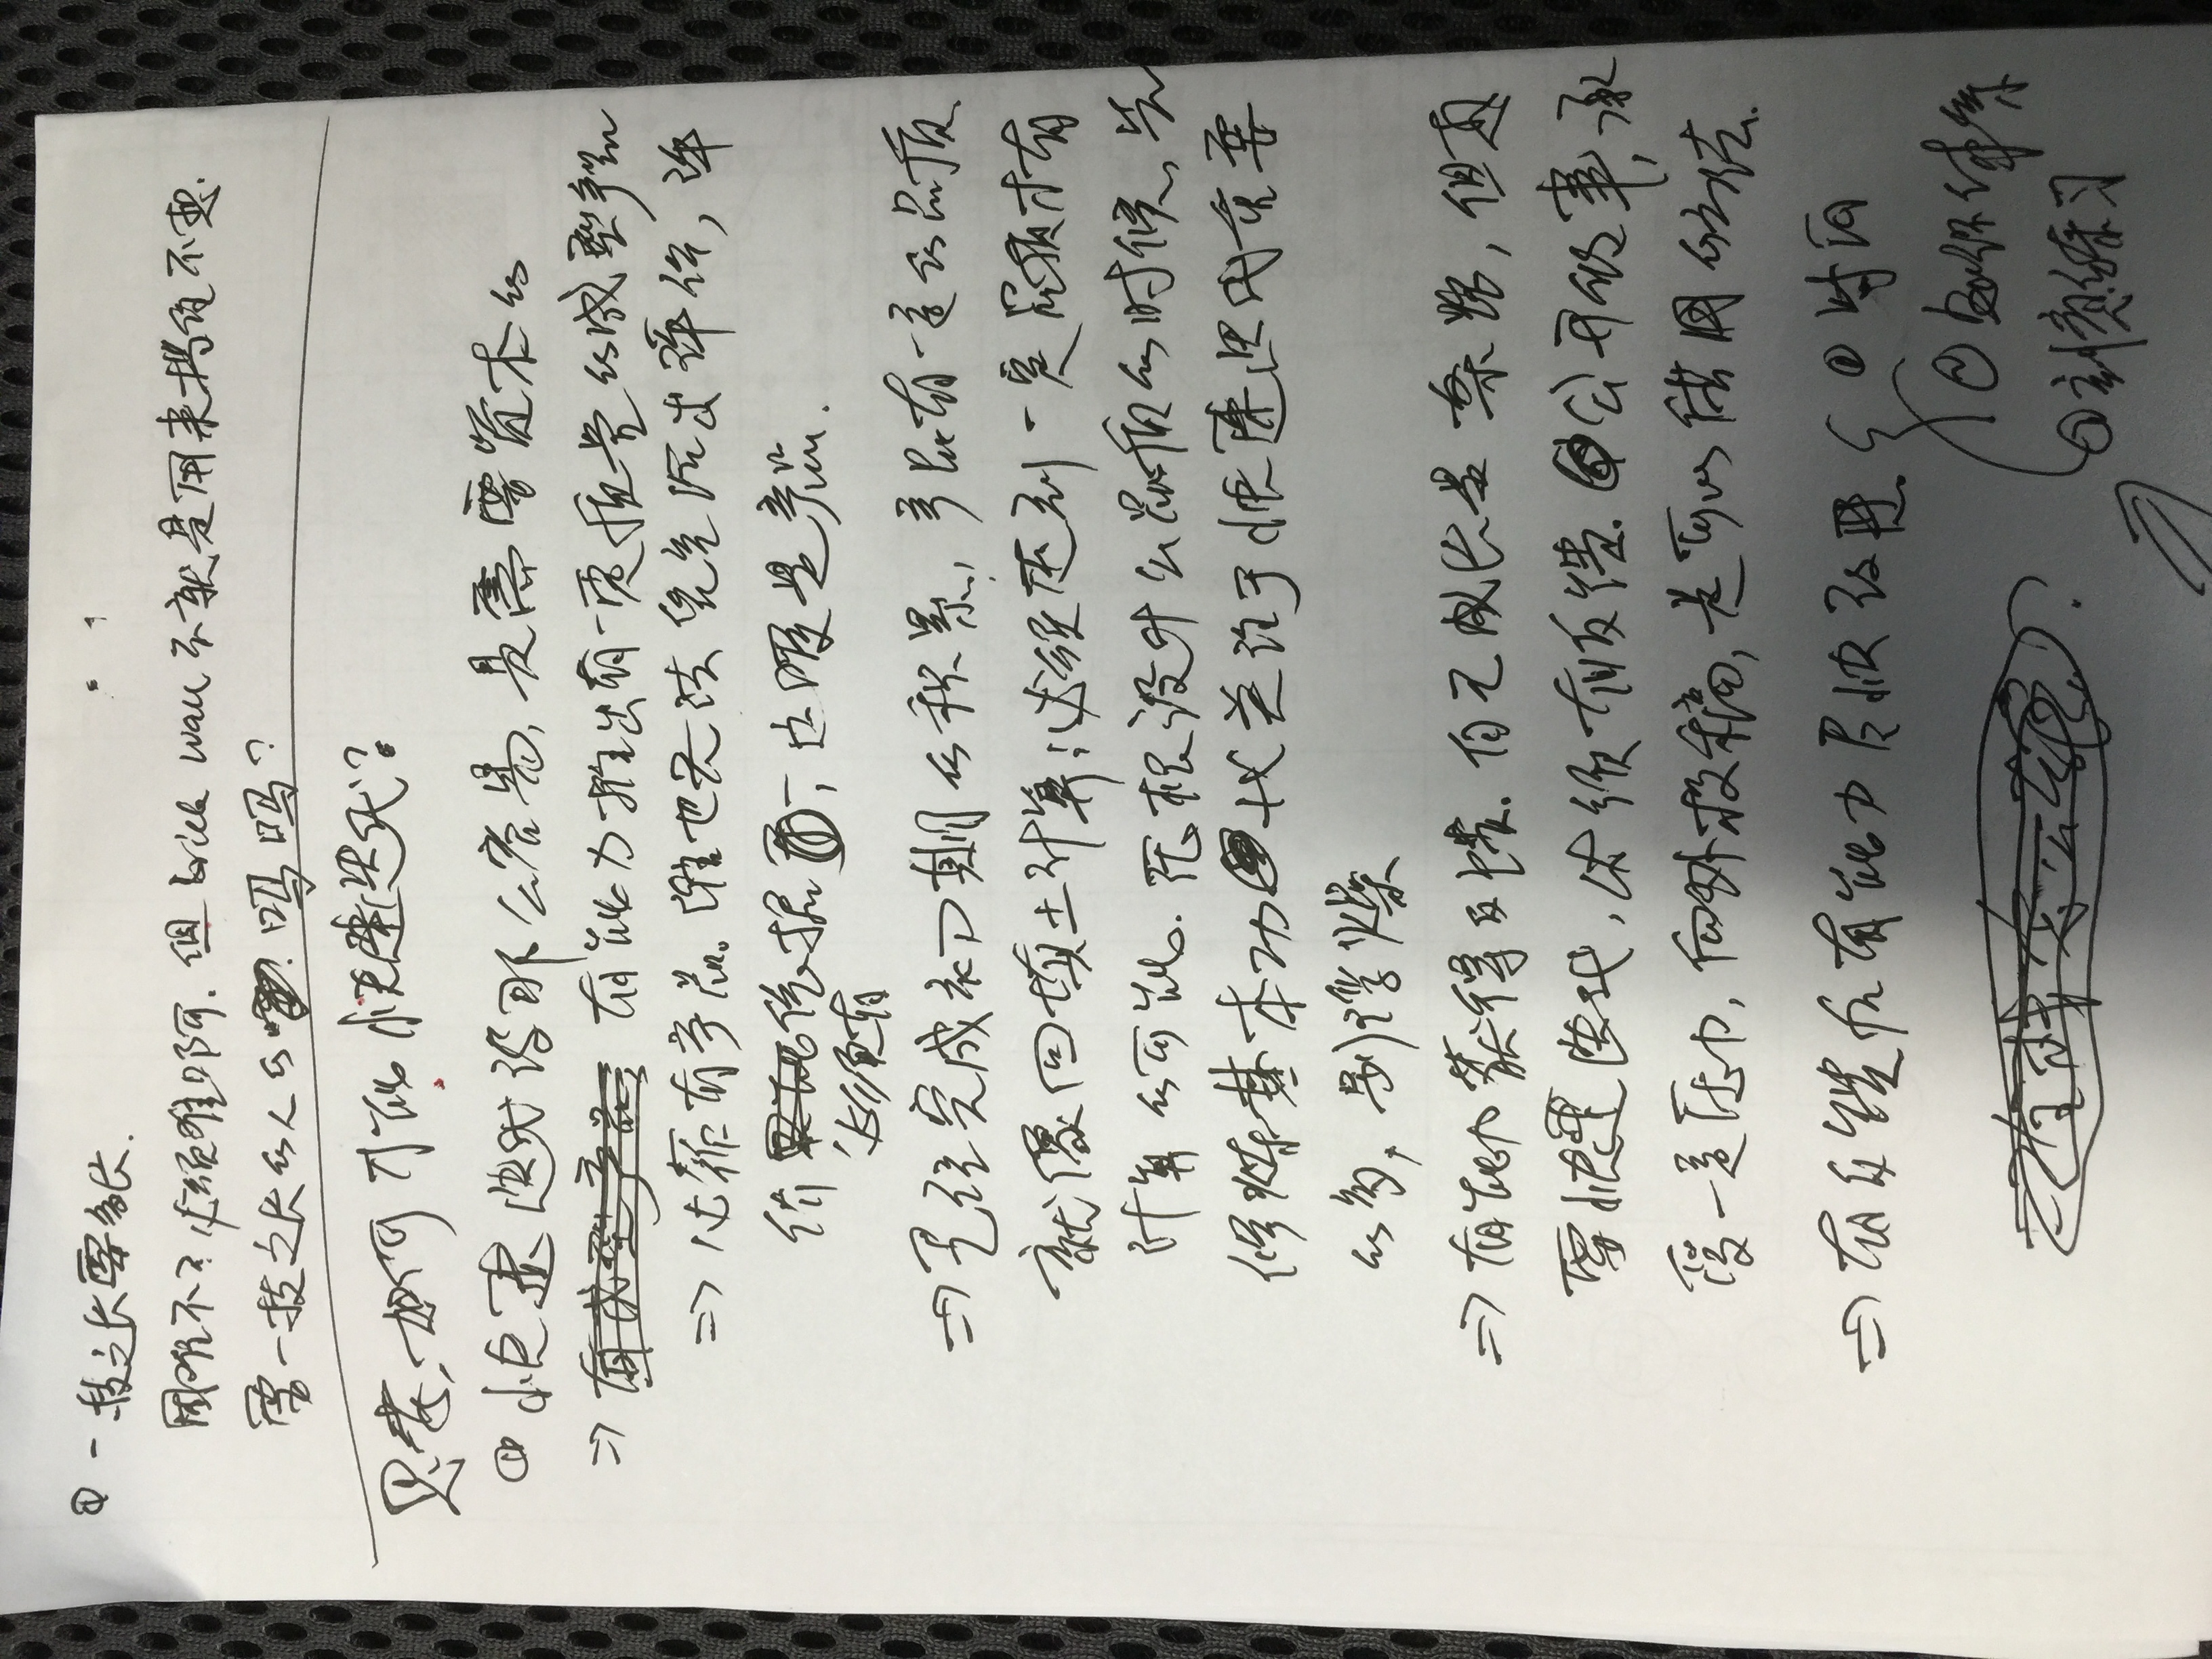 ① 一技之长要多长.
困难不? 必须难啊. 但 brick wall 不就是用来挡住不想
要一技之长的人的 吗吗?
思考, 如何才能快速迭代?
① 快速迭代没那么容易, 是需要资本的
⇒ 有成型产品 有能力推出有一定质量的成型产品
⇒ 必须有产品。谁也无法凭空给出评价, 评
价 依据 , 这服是产品.
必须有
⇒ 已经完成初期的积累, 产品有一定的品质
就像回填土计算; 必须达到一定品质才有
计算的可能. 压根没什么品质的时候, 先
修炼基本功 比关注于快速迭代重要
的多, 别浮燥
⇒ 有能力获得反馈. 自己成长是条路, 但想
要快速迭代, 必须有反馈. 公开做事, 承
受一定压力, 向外投稿, 是可以借用的方法.
⇒ 有反馈后有能力尽快改进. { ① 时间
② 知识体系
③ 刻意练习